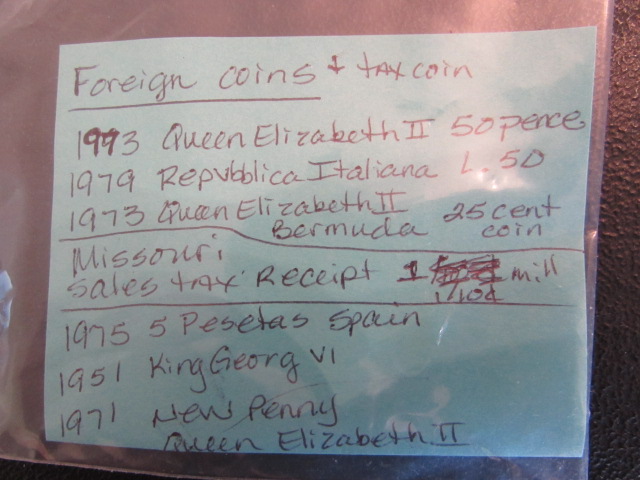 Foreign coins + tax coin
1993 Queen Elizabeth II 50 pence
1979 Repvbblica Italiana L. 50
1973 Queen Elizabeth II
Bermuda 25 cent
coin
Missouri
Sales tax Receipt 1 mill
1/10¢
1975 5 Pesetas Spain
1951 King Georg VI
1971 New Penny
Queen Elizabeth II